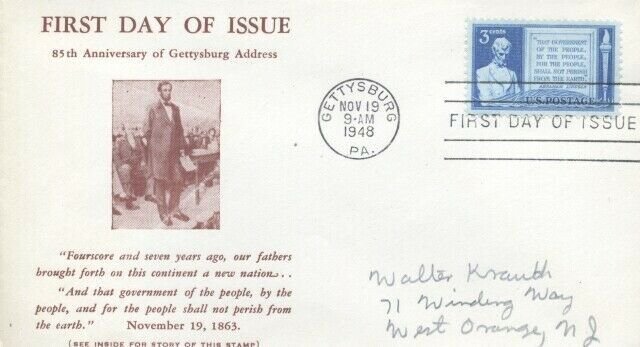 FIRST DAY OF ISSUE
85th Anniversary of Gettysburg Address
"Fourscore and seven years ago, our fathers
brought forth on this continent a new nation...
"And that government of the people, by the
people, and for the people shall not perish from
the earth." November 19, 1863.
(SEE INSIDE FOR STORY OF THIS STAMP)
GETTYSBURG
NOV 19
9-AM
1948
PA.
3 cents
"THAT GOVERNMENT
OF THE PEOPLE,
BY THE PEOPLE,
FOR THE PEOPLE,
SHALL NOT PERISH
FROM THE EARTH."
ABRAHAM LINCOLN
U.S. POSTAGE
FIRST DAY OF ISSUE
Walter Krauth
71 Winding Way
West Orange, NJ